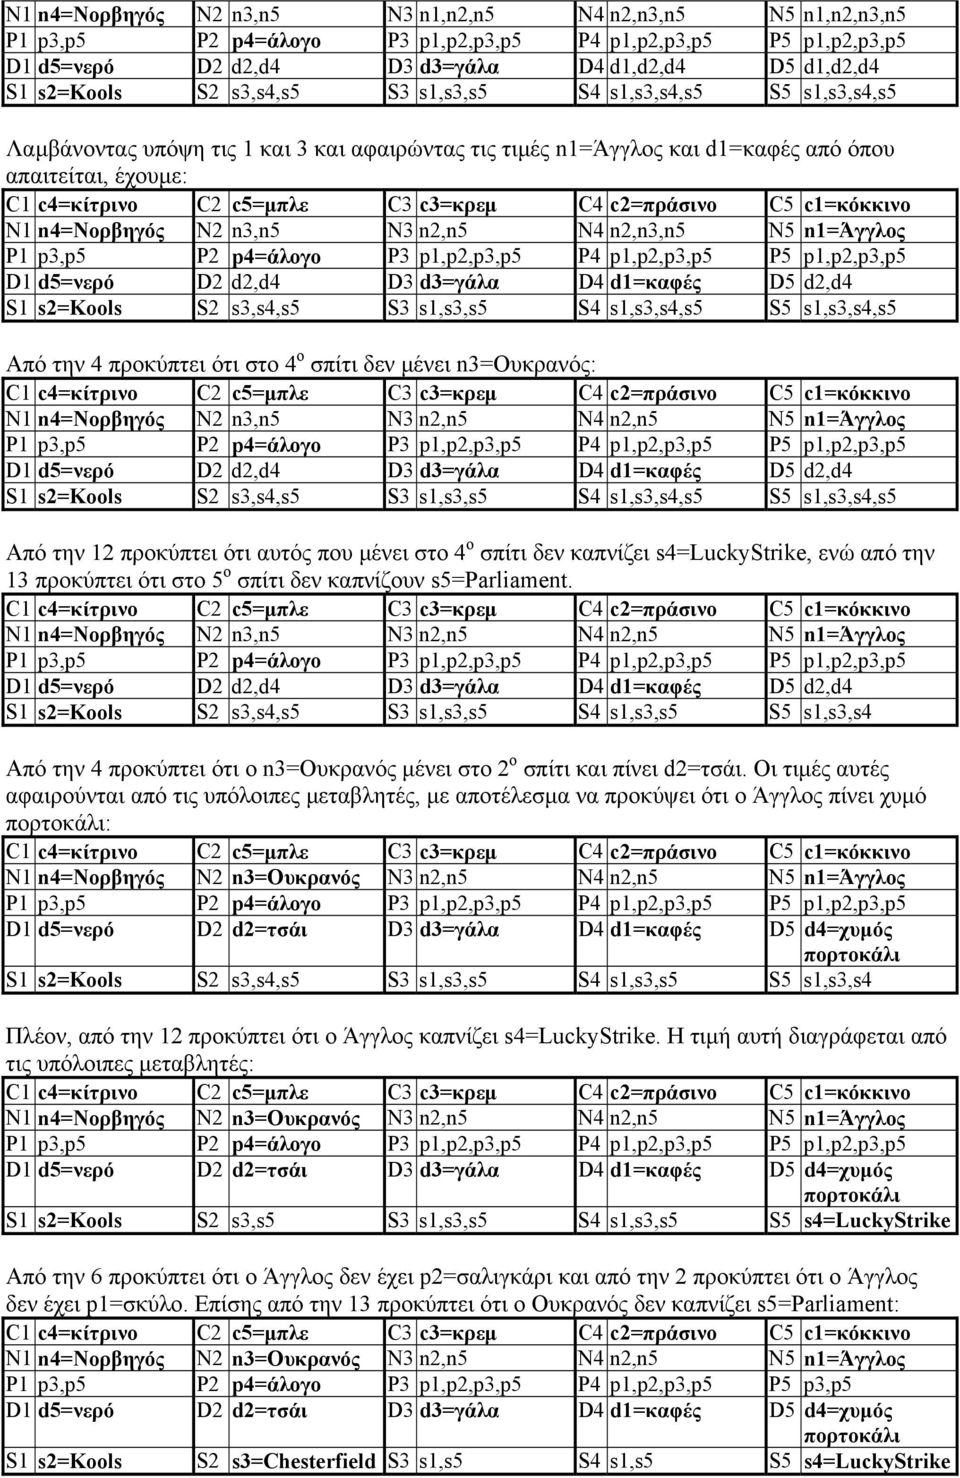 N1 n4=Νορβηγός N2 n3,n5 N3 n1,n2,n5 N4 n2,n3,n5 N5 n1,n2,n3,n5
P1 p3,p5 P2 p4=άλογο P3 p1,p2,p3,p5 P4 p1,p2,p3,p5 P5 p1,p2,p3,p5
D1 d5=νερό D2 d2,d4 D3 d3=γάλα D4 d1,d2,d4 D5 d1,d2,d4
S1 s2=Kools S2 s3,s4,s5 S3 s1,s3,s5 S4 s1,s3,s4,s5 S5 s1,s3,s4,s5
Λαμβάνοντας υπόψη τις 1 και 3 και αφαιρώντας τις τιμές n1=Άγγλος και d1=καφές από όπου
απαιτείται, έχουμε:
C1 c4=κίτρινο C2 c5=μπλε C3 c3=κρεμ C4 c2=πράσινο C5 c1=κόκκινο
N1 n4=Νορβηγός N2 n3,n5 N3 n2,n5 N4 n2,n3,n5 N5 n1=Άγγλος
P1 p3,p5 P2 p4=άλογο P3 p1,p2,p3,p5 P4 p1,p2,p3,p5 P5 p1,p2,p3,p5
D1 d5=νερό D2 d2,d4 D3 d3=γάλα D4 d1=καφές D5 d2,d4
S1 s2=Kools S2 s3,s4,s5 S3 s1,s3,s5 S4 s1,s3,s4,s5 S5 s1,s3,s4,s5
Από την 4 προκύπτει ότι στο 4ο σπίτι δεν μένει n3=Ουκρανός:
C1 c4=κίτρινο C2 c5=μπλε C3 c3=κρεμ C4 c2=πράσινο C5 c1=κόκκινο
N1 n4=Νορβηγός N2 n3,n5 N3 n2,n5 N4 n2,n5 N5 n1=Άγγλος
P1 p3,p5 P2 p4=άλογο P3 p1,p2,p3,p5 P4 p1,p2,p3,p5 P5 p1,p2,p3,p5
D1 d5=νερό D2 d2,d4 D3 d3=γάλα D4 d1=καφές D5 d2,d4
S1 s2=Kools S2 s3,s4,s5 S3 s1,s3,s5 S4 s1,s3,s4,s5 S5 s1,s3,s4,s5
Από την 12 προκύπτει ότι αυτός που μένει στο 4ο σπίτι δεν καπνίζει s4=LuckyStrike, ενώ από την
13 προκύπτει ότι στο 5ο σπίτι δεν καπνίζουν s5=Parliament.
C1 c4=κίτρινο C2 c5=μπλε C3 c3=κρεμ C4 c2=πράσινο C5 c1=κόκκινο
N1 n4=Νορβηγός N2 n3,n5 N3 n2,n5 N4 n2,n5 N5 n1=Άγγλος
P1 p3,p5 P2 p4=άλογο P3 p1,p2,p3,p5 P4 p1,p2,p3,p5 P5 p1,p2,p3,p5
D1 d5=νερό D2 d2,d4 D3 d3=γάλα D4 d1=καφές D5 d2,d4
S1 s2=Kools S2 s3,s4,s5 S3 s1,s3,s5 S4 s1,s3,s5 S5 s1,s3,s4
Από την 4 προκύπτει ότι ο n3=Ουκρανός μένει στο 2ο σπίτι και πίνει d2=τσάι. Οι τιμές αυτές
αφαιρούνται από τις υπόλοιπες μεταβλητές, με αποτέλεσμα να προκύψει ότι ο Άγγλος πίνει χυμό
πορτοκάλι:
C1 c4=κίτρινο C2 c5=μπλε C3 c3=κρεμ C4 c2=πράσινο C5 c1=κόκκινο
N1 n4=Νορβηγός N2 n3=Ουκρανός N3 n2,n5 N4 n2,n5 N5 n1=Άγγλος
P1 p3,p5 P2 p4=άλογο P3 p1,p2,p3,p5 P4 p1,p2,p3,p5 P5 p1,p2,p3,p5
D1 d5=νερό D2 d2=τσάι D3 d3=γάλα D4 d1=καφές D5 d4=χυμός
πορτοκάλι
S1 s2=Kools S2 s3,s4,s5 S3 s1,s3,s5 S4 s1,s3,s5 S5 s1,s3,s4
Πλέον, από την 12 προκύπτει ότι ο Άγγλος καπνίζει s4=LuckyStrike. Η τιμή αυτή διαγράφεται από
τις υπόλοιπες μεταβλητές:
C1 c4=κίτρινο C2 c5=μπλε C3 c3=κρεμ C4 c2=πράσινο C5 c1=κόκκινο
N1 n4=Νορβηγός N2 n3=Ουκρανός N3 n2,n5 N4 n2,n5 N5 n1=Άγγλος
P1 p3,p5 P2 p4=άλογο P3 p1,p2,p3,p5 P4 p1,p2,p3,p5 P5 p1,p2,p3,p5
D1 d5=νερό D2 d2=τσάι D3 d3=γάλα D4 d1=καφές D5 d4=χυμός
πορτοκάλι
S1 s2=Kools S2 s3,s5 S3 s1,s3,s5 S4 s1,s3,s5 S5 s4=LuckyStrike
Από την 6 προκύπτει ότι ο Άγγλος δεν έχει p2=σαλιγκάρι και από την 2 προκύπτει ότι ο Άγγλος
δεν έχει p1=σκύλο. Επίσης από την 13 προκύπτει ότι ο Ουκρανός δεν καπνίζει s5=Parliament:
C1 c4=κίτρινο C2 c5=μπλε C3 c3=κρεμ C4 c2=πράσινο C5 c1=κόκκινο
N1 n4=Νορβηγός N2 n3=Ουκρανός N3 n2,n5 N4 n2,n5 N5 n1=Άγγλος
P1 p3,p5 P2 p4=άλογο P3 p1,p2,p3,p5 P4 p1,p2,p3,p5 P5 p3,p5
D1 d5=νερό D2 d2=τσάι D3 d3=γάλα D4 d1=καφές D5 d4=χυμός
πορτοκάλι
S1 s2=Kools S2 s3=Chesterfield S3 s1,s5 S4 s1,s5 S5 s4=LuckyStrike